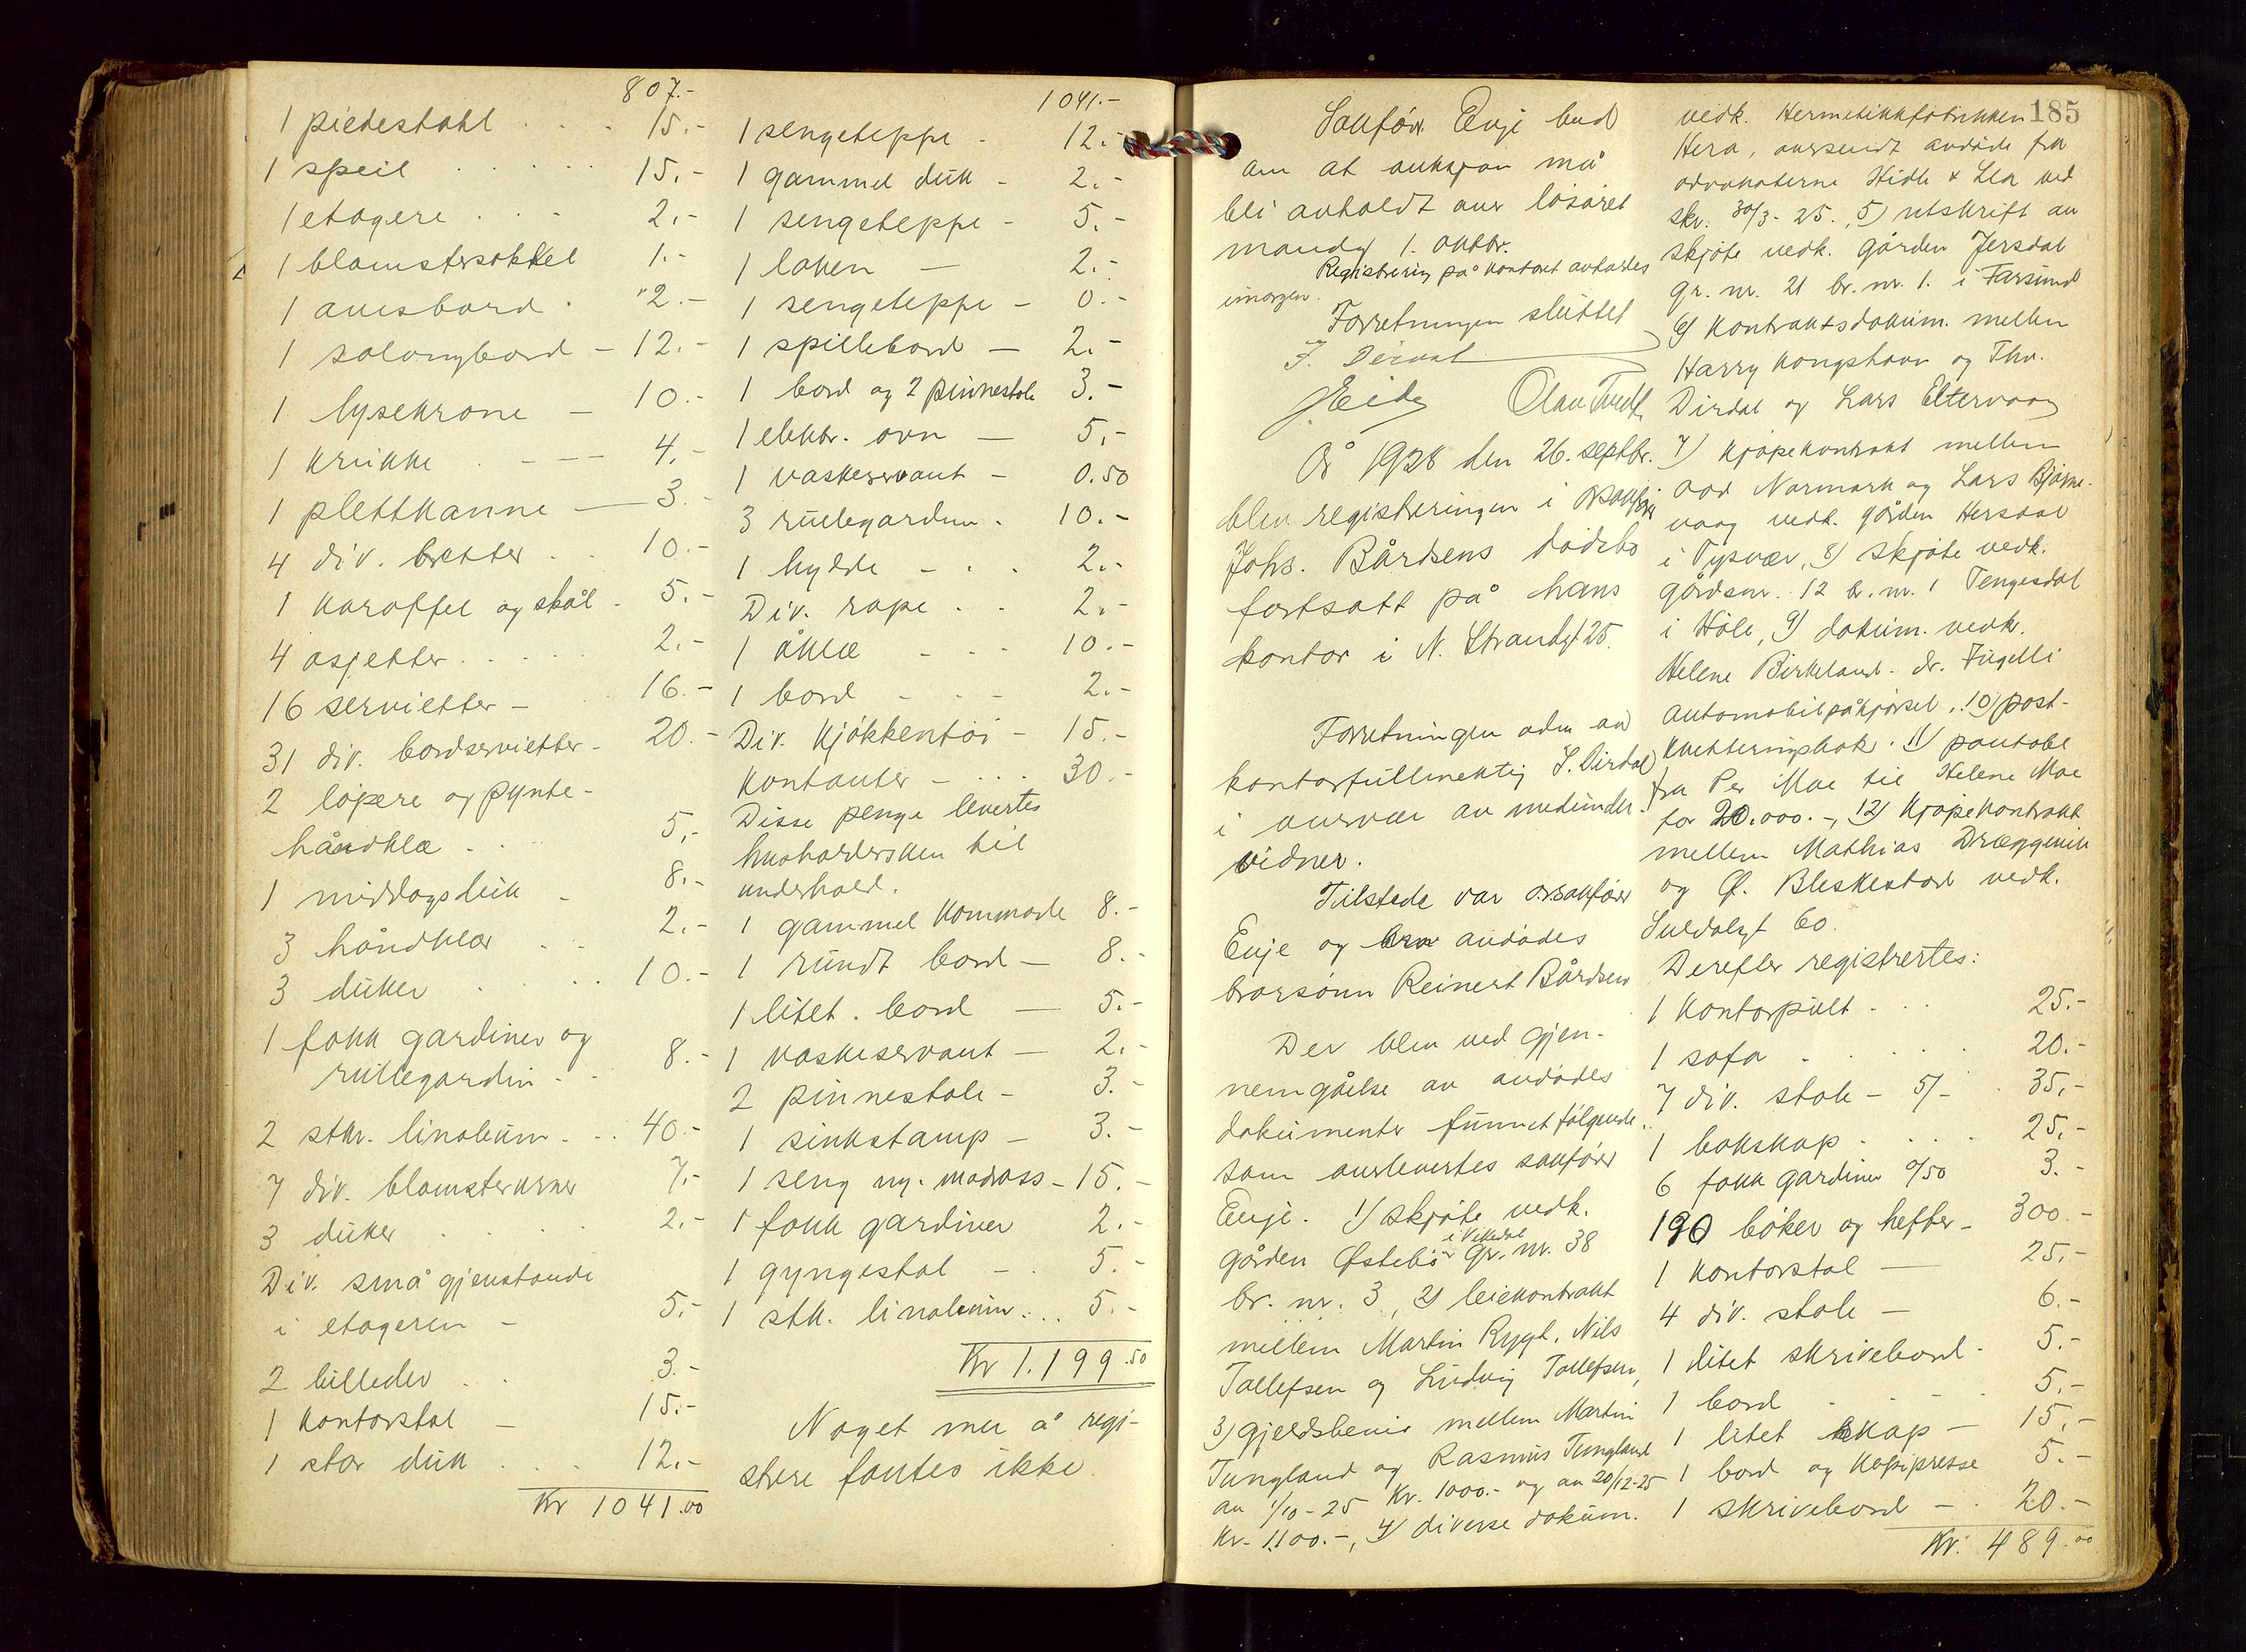 807.-
1 piedestahl . . . 15.-
1 speil . . . . . 15.-
1 etagere . . . 2.-
1 blomstersokkel 1.-
1 avisbord . 2.-
1 salongbord - 12.-
1 lysekrone - 10.-
1 krukke . - - - 4.-
1 plettkanne - 3.-
4 div. bretter . . 10.-
1 karaffel og skål . 5.-
4 asjetter . . . . . 2.-
16 servietter - 16.-
31 div. bordservietter - 20.-
2 løpere og pynte-
håndklæ . . . 5.-
1 middagsduk - 8.-
3 håndklær . . 2.-
3 duker . . . . . 10.-
1 fakk gardiner og
rullegardin . . 8.-
2 stkr. linoleum . . . 40.-
7 div. blomsterurner 7.-
3 duker . . . 2.-
Div. små gjenstande
i etageren - 5.-
2 billeder . . . 3.-
1 kontorstol - 15.-
1 stor duk . . . 12.-
Kr 1041.00
1041.-
1 sengeteppe - 12.-
1 gammel duk - 2.-
1 sengeteppe - 5.-
1 laken - 2.-
1 sengeteppe - 0.-
1 spillebord - 2.-
1 bord og 2 pinnestole 3.-
1 elektr. ovn - 5.-
1 vaskeservant - 0.50
3 rullegardiner . 10.-
1 hylde - . . 2.-
Div. rape . . 2.-
1 åklæ - - - 10.-
1 bord - - - 2.-
Div. kjøkkentøi - 15.-
Kontanter - . . . 30.-
Disse penge levertes
husholdersken til
underhold.
1 gammel kommode 8.-
1 rundt bord - 8.-
1 litet . bord - 5.-
1 vaskeservant - 2.-
2 pinnestole - 3.-
1 sinkstamp - 3.-
1 seng og madrass - 15.-
1 fakk gardiner 2.-
1 gyngestol - . 5.-
1 stk. linoleum . . . 5.-
Kr 1.199.50
Noget mer å regi-
strere fantes ikke.
Sakfører Evje bad
om at auksjon må
bli avholdt over løsøret
mandag 1. oktbr.
Registrering på kontoret avholdes
imorgen.
Forretningen sluttet
J. Dirdal
J Eide Olav Tvedt
År 1928 den 26. septbr.
blev registreringen i o.r.sakfører
Johs. Bårdsens dødsbo
fortsatt på hans
kontor i N. Strandgt 25.
Forretningen adm av
kontorfullmektig J. Dirdal
i overvær av medunder-
vidner.
Tilstede var o.r.sakfører
Evje og avdødes
brorsønn Reinert Bårdsen
Der blev ved gjen-
nemgåelse av avdødes
dokumenter funnet følgende
som overlevertes sakfører
Evje. 1) Skjøte vedk.
gården Østebø i Vikedal gr. nr. 38
br. nr. 3, 2) leiekontrakt
mellem Martin Rygh, Nils
Tollefsen og Ludvig Tollefsen,
3) gjeldsbevis mellem Martin
Tungland og Rasmus Tungland
av 1/10-25 kr. 1000.- og av 20/12-25
kr. 1.100.-, 4) diverse dokum.
185
vedk. Hermetikkfabrikken
Hera, oversendt avdøde fra
advokaterne Hidle & Lea ved
skr. 30/3-25, 5) utskrift av
skjøte vedk. gården Jersdal
gr. nr. 21 br. nr. 1. i Farsund
6) Kontraktsdokum. mellem
Harry Kongshavn og Thv.
Dirdal og Lars Eltervaag
7) Kjøpekontrakt mellem
Odd Normark og Lars Bjørne-
vaag vedk. gården Hersdal
i Tysvær, 8) skjøte vedk.
gårdsnr. 12 br. nr. 1 Tengesdal
i Høle, 9) dokum. vedk.
Helene Birkeland - dr. Fugelli
automobilpåkjørsel, 10) post-
kvitteringsbok. 11) pantobl
fra Per Moe til Helene Moe
for 20.000.-, 12) Kjøpekontrakt
mellem Mathias Dræggevik
og Ø. Bleskestad vedk.
Suldalsgt 60.
Derefter registrertes:
1 kontorpult . . . 25.-
1 sofa . . . . . 20.-
7 div. stole - 5/- . 35.-
1 bokskap . . . . 25.-
6 fakk gardiner 0/50 3.-
190 bøker og hefter - 300.-
1 kontorstol - 25.-
4 div. stole - 6.-
1 litet skrivebord - 5.-
1 bord - - - 5.-
1 litet skap - 15.-
1 bord og kopipresse 5.-
1 skrivebord - . 20.-
Kr. 489.00